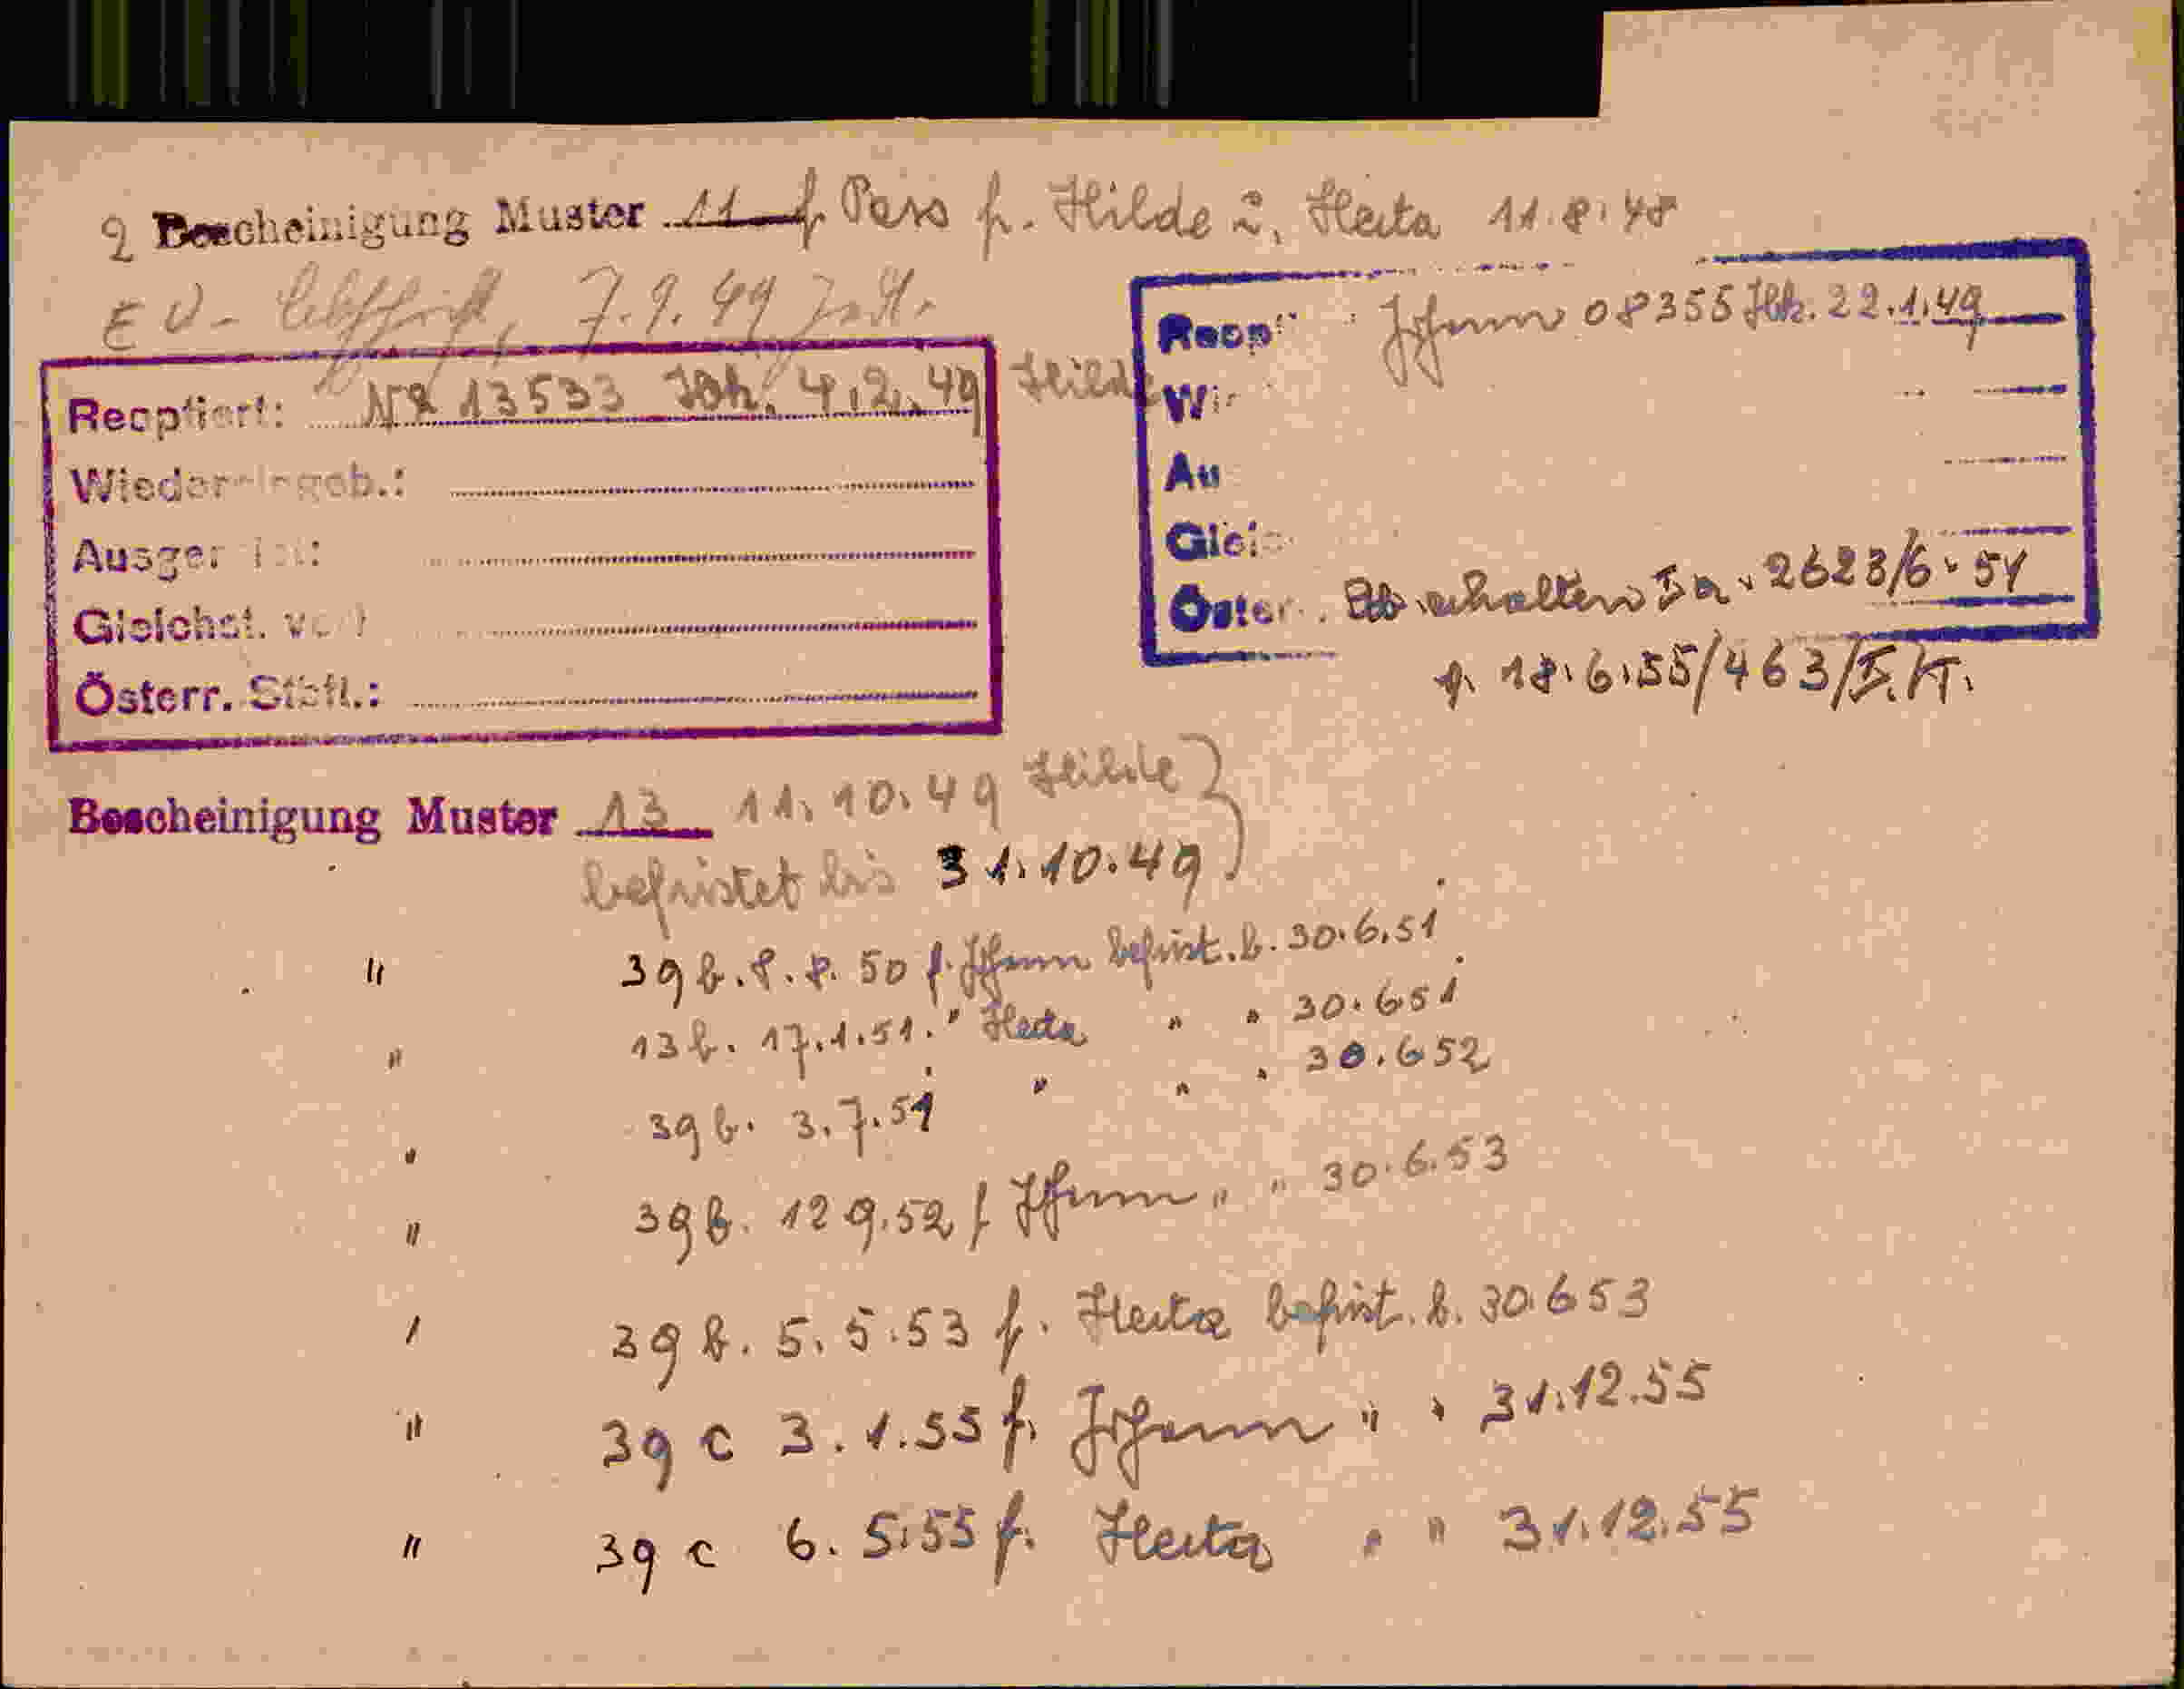 2 Bescheinigung Muster 11 f. Pass f. Hilde u. Herta 11.8.48
EV- 7.9.49
Reoptiert: Nr 13533 Ibk. 4.2.49 Hilde
Wiedereingeb.:
Ausger
Gleichst. v
Österr. Stbft.:
Reopt Johann 08355 Ibk. 22.1.49
Wi
Au
Gleic
Öster. erhalten Ia. 2623/6.51
f. 18.6.55/463/
Bescheinigung Muster 13 11.10.49 Hilde
befristet bis 31.10.49
" 39 b. 8.8.50 f. Johann befrist. b. 30.6.51
" 13 b. 17.1.51. " Herta " " 30.6 51
" 39 b. 3.7.51 " " " 30.6 52
" 39 b. 12 9.52 f Johann " " 30.6.53
" 39 b. 5.5.53 f. Herta befrist. b. 30.6 53
" 39 c 3.1.55 f. Johann " " 31.12.55
" 39 c 6.5.55 f. Herta " " 31.12.55